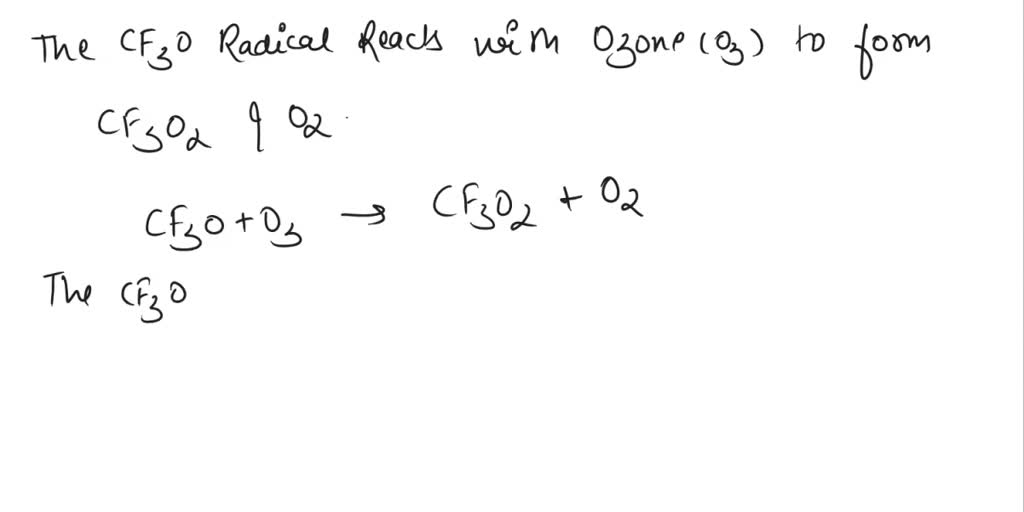 The CF₃O Radical Reacts with Ozone (O₃) to form
CF₃O₂ & O₂
CF₃O + O₃ → CF₃O₂ + O₂
The CF₃O